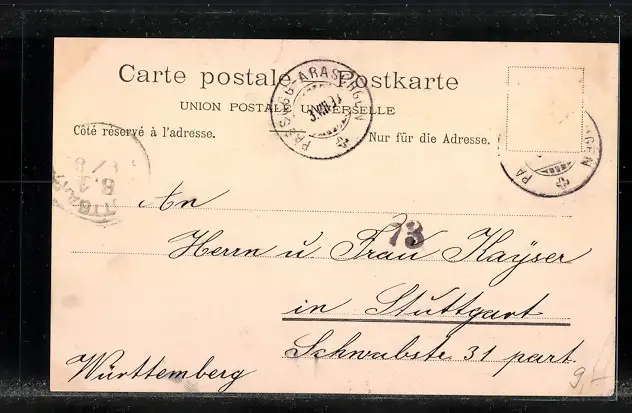 Carte postale Postkarte
UNION POSTALE UNIVERSELLE
Côté réservé à l'adresse.
Nur für die Adresse.
PASSUGG-ARASCHGEN
An
73
Herrn u Frau Kayser
in Stuttgart
Schwabstr. 31 part.
Württemberg
9,-